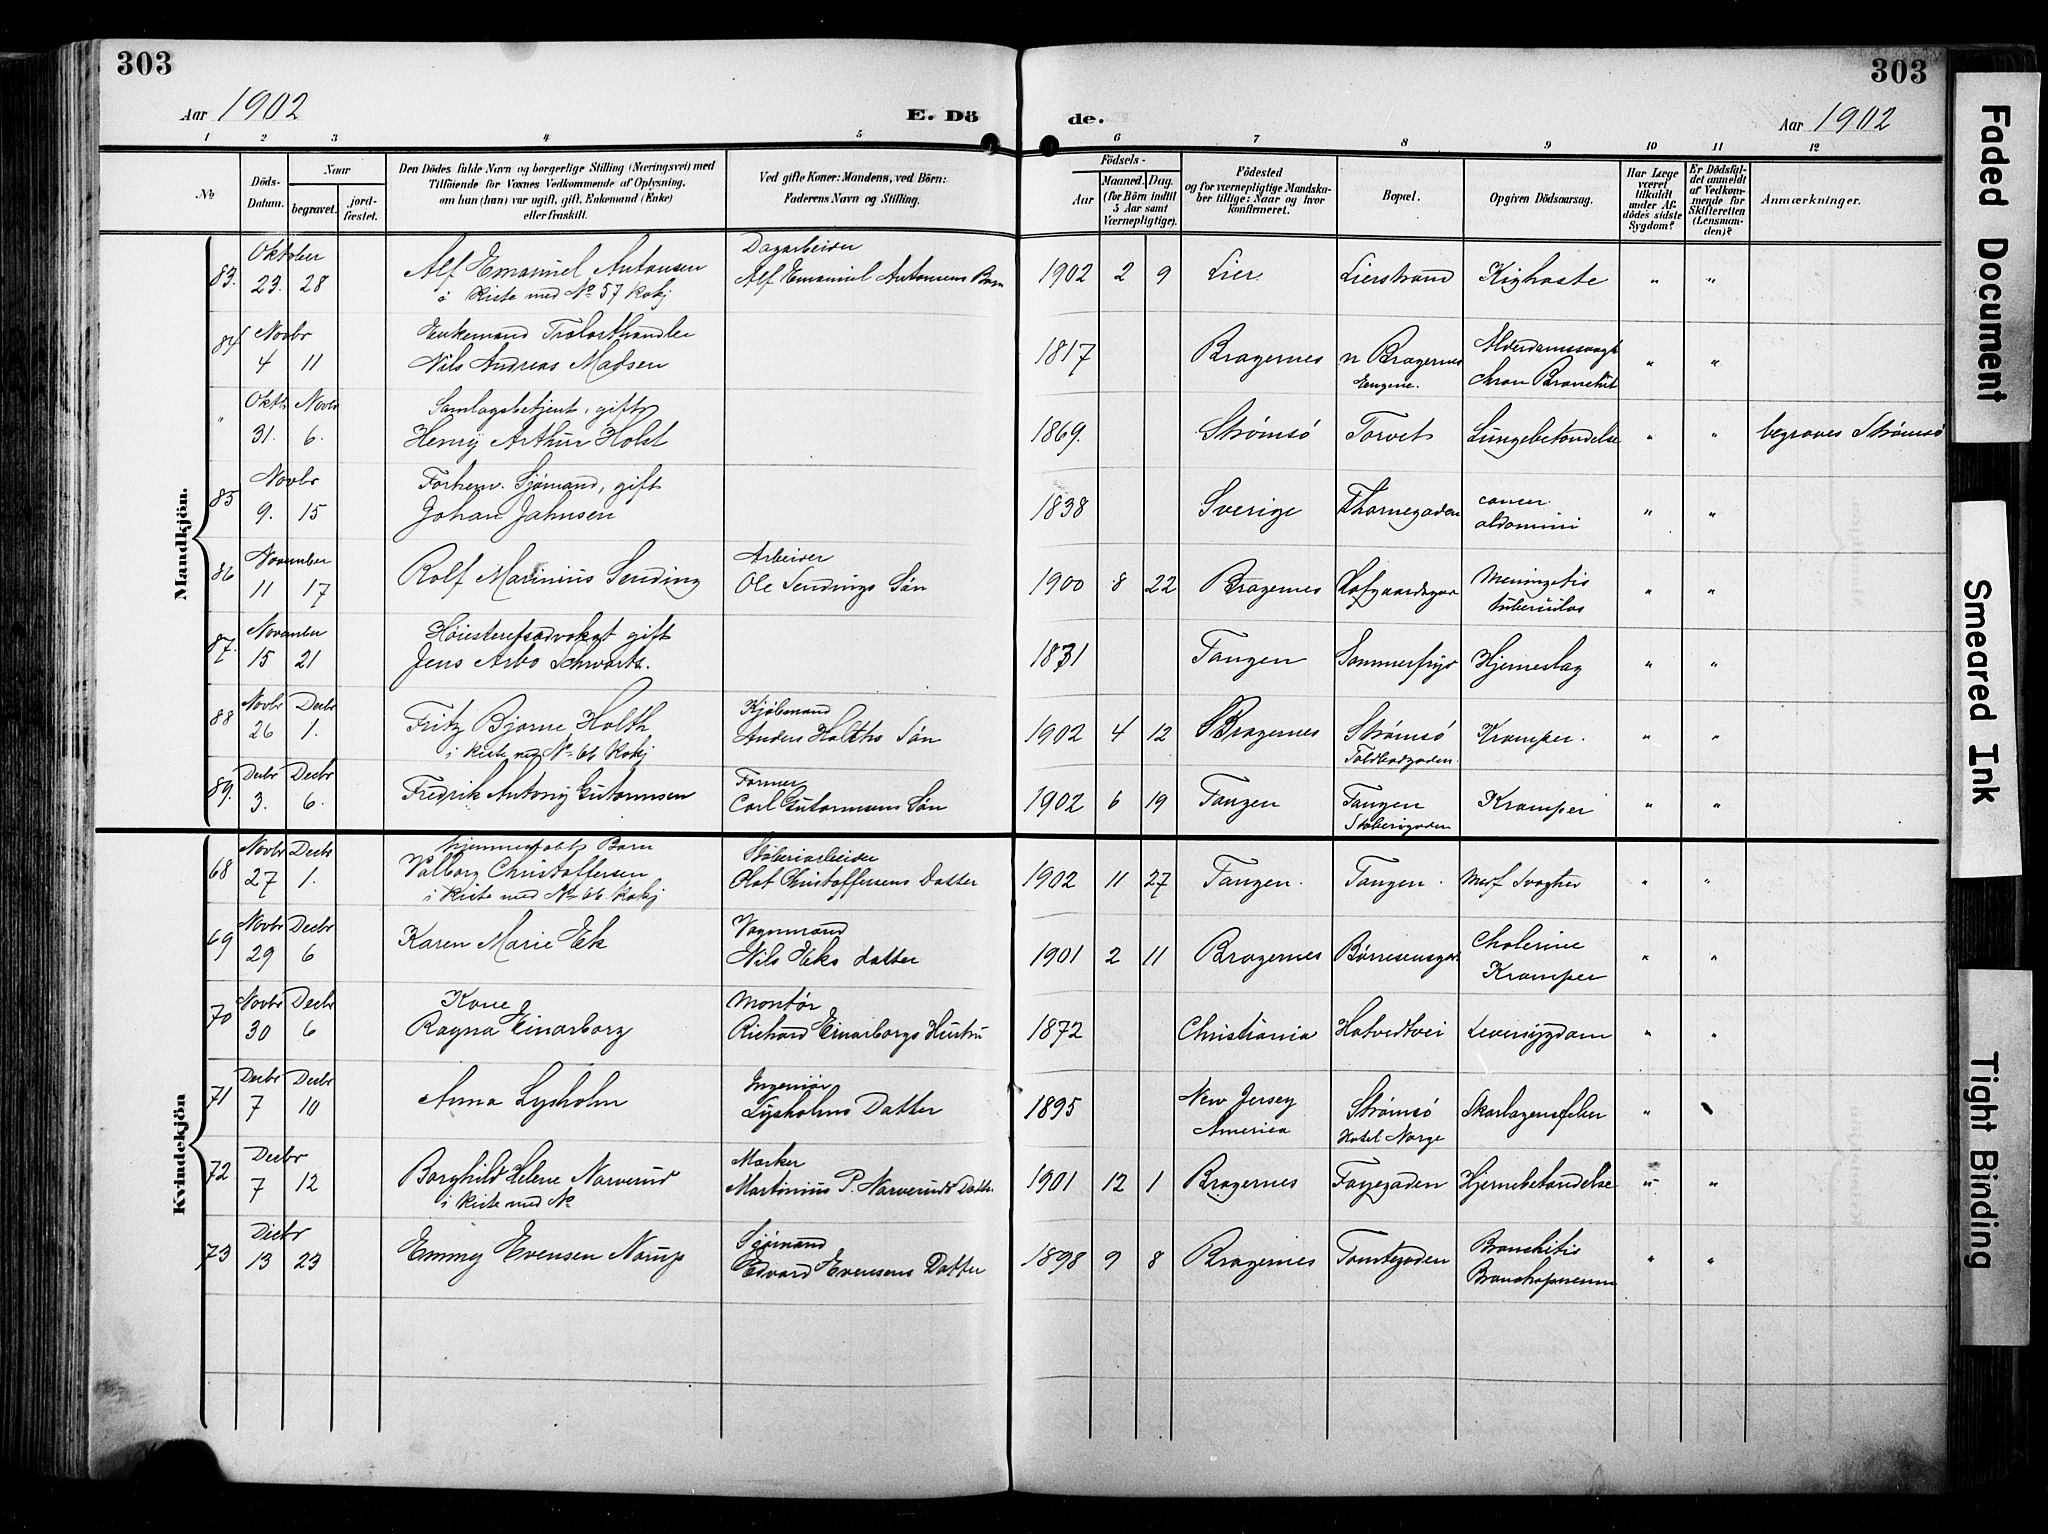 303
303
Aar 1902
E. Dö
de.
Aar 1902
1 2 3 4 5 6 7 8 9 10 11 12
No
Döds-
Datum.
Naar
begravet.
jord-
fæstet.
Den Dödes fulde Navn og borgerlige Stilling (Næringsvei) med
Tilföiende for Voxnes Vedkommende af Oplysning,
om han (hun) var ugift, gift, Enkemand (Enke)
eller fraskilt.
Ved gifte Koner: Mandens, ved Börn:
Faderens Navn og Stilling.
Födsels-
Aar
Maaned. Dag.
(for Börn indtil
5 Aar samt
Værnepligtige).
Födested
og for værnepligtige Mandska-
ber tillige: Naar og hvor
konfirmeret.
Bopæl.
Opgiven Dödsaarsag.
Har Læge
været
tilkaldt
under Af-
dödes sidste
Sygdom?
Er Dödsfal-
det anmeldt
af Vedkom-
mende for
Skifteretten
(Lensman-
den)?
Anmærkninger.
Mandkjön.
83. Oktober
23. 28
Alf Emanuel Antonsen
i kiste med No 57 Kvkj
Dagarbeider
Alf Emanuel Antonsens Barn
1902 2 9 Lier Lierstrand Kighoste " "
84 Novbr
4 11
Enkemand Trælasthandler
Nils Andreas Madsen
1817 Bragernes n Bragernes
Engene.
Alderdomssvagh
chron Bronchit " "
" Oktbr Novbr
31. 6.
Samlagsbetjent, gift
Henry Arthur Holst
1869. Strømsó Torvet Lungebetændelse " " begraves Strømsó
85 Novbr
9. 15
Forhenv. Sjømand, gift
Johan Jahnsen
1838 Sverige Thornegaden cancer
abdomini " "
86 November
11 17
Rolf Marinius Sending
Arbeider
Ole Sendings Søn
1900 8 22 Bragernes Hofgaardsgad Meningetis
tuberculos " "
87. November
15 21
Høiesteretsadvokat gift
Jens Arbo Schwartz.
1831 Tangen Sommerfryd Hjerneslag " "
88 Novbr Decbr
26 1.
Fritz Bjarne Holth
i kiste med No 66 Kvkj
Kjøbmand
Anders Holths Søn
1902 4 12 Bragernes Strømsó
Toldbodgaden.
Kramper. " "
89. Decbr Decbr
3. 6.
Fredrik Antony Gutormsen
Former
Carl Gutormsens Søn
1902 6 19 Tangen Tangen
Støberigaden
Kramper " "
Kvindekjön
68 Novbr Decbr
27 1.
hjemmedøbt Barn
Valborg Christoffersen
i kiste med No 66. Kvkj
Støberiarbeider
Olaf Christoffersens Datter
1902 11 27 Tangen. Tangen. Medf Svaghed " "
69 Novbr Decbr
29 6
Karen Marie Ek
Vognmand
Nils Eks datter
1901 2 11 Bragernes Børresensgad Cholerine
Kramper " "
70 Novbr Decbr
30 6
Kone
Ragna Einarborg
Montør
Richard Einarborgs Hustru
1872 Christiania Hotvedtvei Leversygdom " "
71 Decbr Decbr
7 10
Anna Lysholm
Ingeniør
Lysholms Datter
1895 New Jersey
America
Strømsó
Hotel Norge
Skarlagensfeber "
72 Decbr
7 12
Borghild Helene Narverud
i kiste med No
Marker
Martinius P. Narveruds Datter
1901 12 1 Bragernes Fayegaden Hjernebetændelse " "
73 Decbr
13 23
Emmy Evensen Norup
Sjømand
Edvard Evensens Datter
1898 9 8 Bragernes Tomtegaden Bronchitis " "
Faded Document
Smeared Ink
Tight Binding